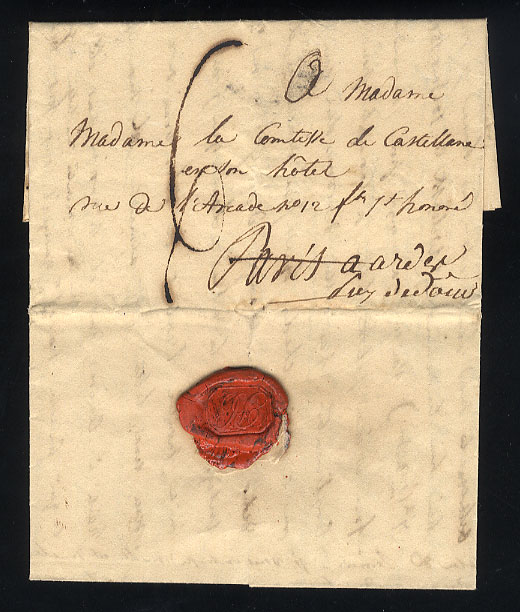 A Madame
Madame la Comtesse de Castellane
en son hôtel
rue de l'Arcade no 12 fbg St honoré
Paris a